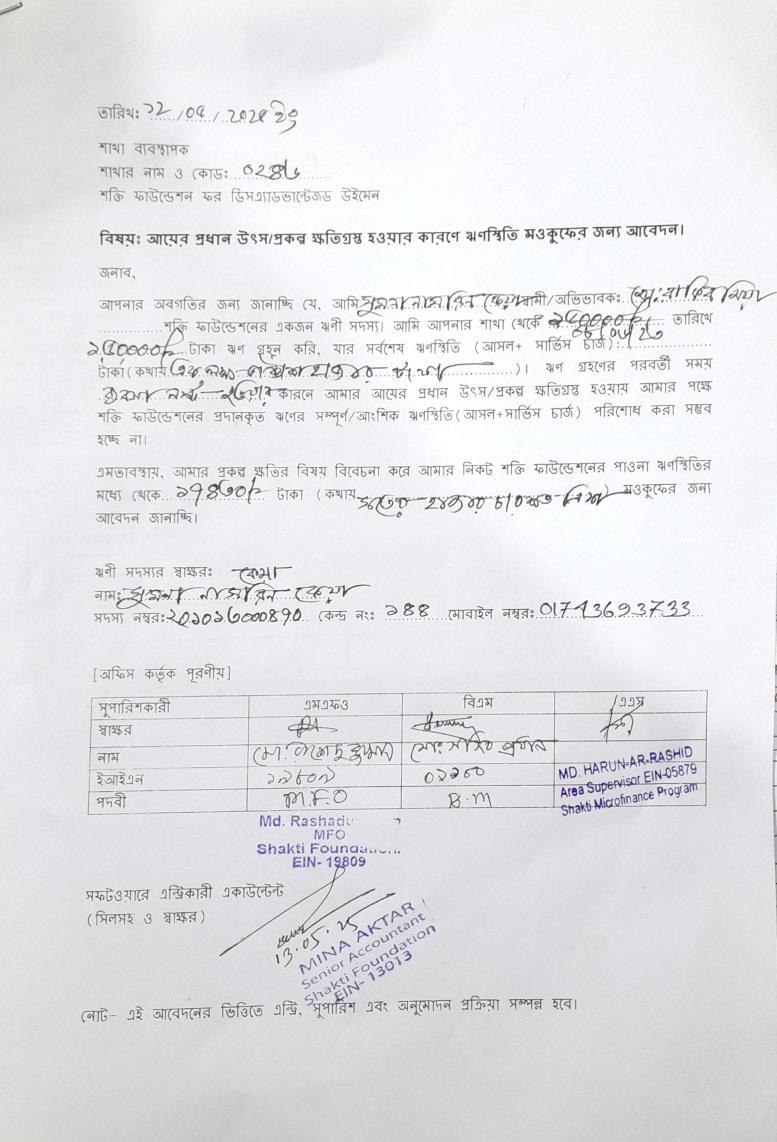 তারিখ: ১২/০৫/২০২৫ ইং
শাখা ব্যবস্থাপক
শাখার নাম ও কোড:
শক্তি ফাউন্ডেশন ফর ডিসএ্যাডভান্টেজড উইমেন
বিষয়: আয়ের প্রধান উৎস/প্রকল্প ক্ষতিগ্রস্থ হওয়ার কারণে ঋণস্থিতি মওকুফের জন্য আবেদন।
জনাব,
আপনার অবগতির জন্য জানাচ্ছি যে, আমি সুমনা নাসরিন কেয়া স্বামী/অভিভাবক: মিয়া
শক্তি ফাউন্ডেশনের একজন ঋণী সদস্য। আমি আপনার শাখা থেকে ১৫০০০০/- তারিখে
১৫০০০০/- টাকা ঋণ গ্রহন করি, যার সর্বশেষ ঋণস্থিতি (আসল+ সার্ভিস চার্জ):
টাকা(কথায় এক লক্ষ পঞ্চাশ হাজার টাকা)। ঋণ গ্রহণের পরবর্তী সময়
কারনে আমার আয়ের প্রধান উৎস/প্রকল্প ক্ষতিগ্রস্থ হওয়ায় আমার পক্ষে
শক্তি ফাউন্ডেশনের প্রদানকৃত ঋণের সম্পূর্ণ/আংশিক ঋণস্থিতি(আসল+সার্ভিস চার্জ) পরিশোধ করা সম্ভব
হচ্ছে না।
এমতাবস্থায়, আমার প্রকল্প ক্ষতির বিষয় বিবেচনা করে আমার নিকট শক্তি ফাউন্ডেশনের পাওনা ঋণস্থিতির
মধ্যে থেকে ১৭৪৩০/- টাকা (কথায় সতের হাজার চারশত ত্রিশ) মওকুফের জন্য
আবেদন জানাচ্ছি।
ঋণী সদস্যর স্বাক্ষর: কেয়া
নাম: সুমনা নাসরিন কেয়া
সদস্য নম্বর: কেন্দ্র নং: ১৪৪ মোবাইল নম্বর: 01743693733
[অফিস কর্তৃক পূরণীয়]
সুপারিশকারী এমএফও বিএম এএস
স্বাক্ষর
নাম প্রধান MD. HARUN-AR-RASHID
ইআইএন ১৯৮০৯ Area Supervisor EIN-05879
পদবী M.F.O B.M Shakti Microfinance Program
Md. Rashadu
MFO
Shakti Foundation
EIN- 19809
সফটওয়ারে এন্ট্রিকারী একাউন্টেন্ট
(সিলসহ ও স্বাক্ষর)
13.05.25
MINA AKTAR
Senior Accountant
Shakti Foundation
EIN- 13013
নোট- এই আবেদনের ভিত্তিতে এন্ট্রি, সুপারিশ এবং অনুমোদন প্রক্রিয়া সম্পন্ন হবে।